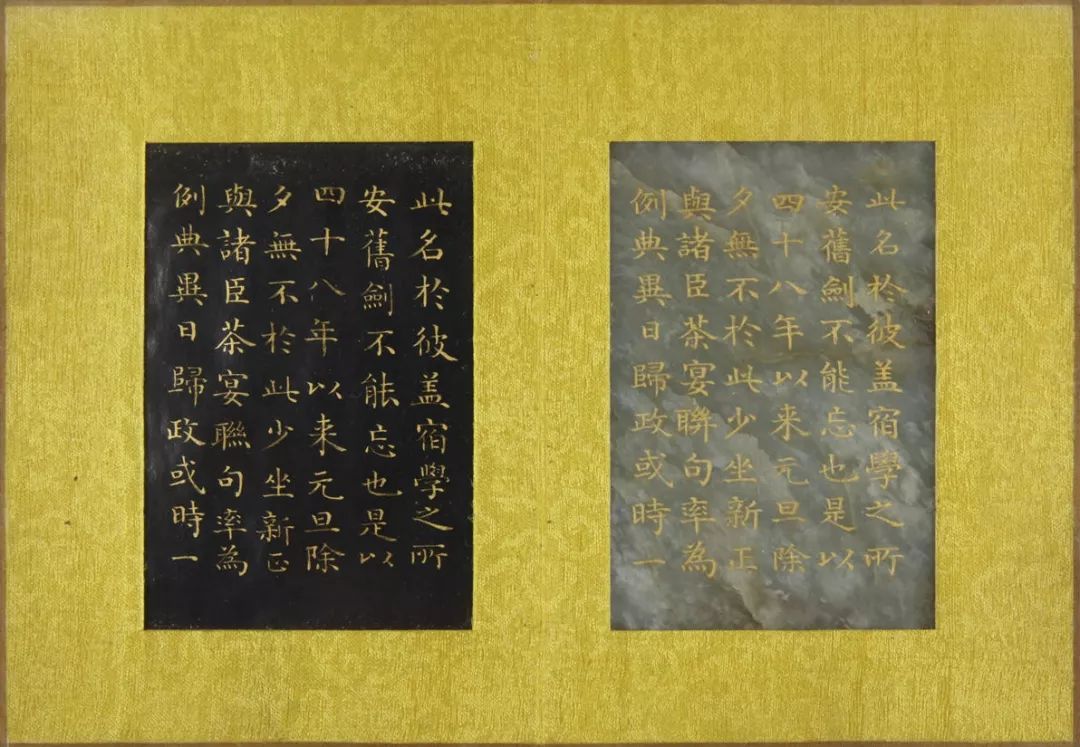 此名於彼盖宿學之所
安舊劍不能忘也是以
四十八年以来元旦除
夕無不於此少坐新正
與諸臣茶宴聯句率為
例典異日歸政或時一
此名於彼盖宿學之所
安舊劍不能忘也是以
四十八年以来元旦除
夕無不於此少坐新正
與諸臣茶宴聯句率為
例典異日歸政或時一